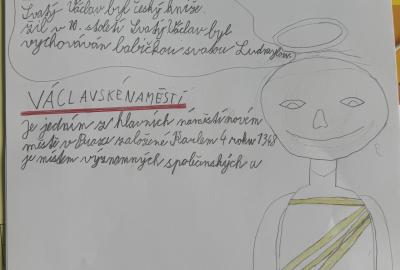 Svatý Václav byl český kníže.
žil v 10. století Svatý Václav byl
vychováván babičkou svatou Ludmilou.
VÁCLAVSKÉ NAMĚSTÍ
Je jedním z hlavních náměstí novém
městě v Praze založené Karlem 4 roku 1348
je místem významných společenských a